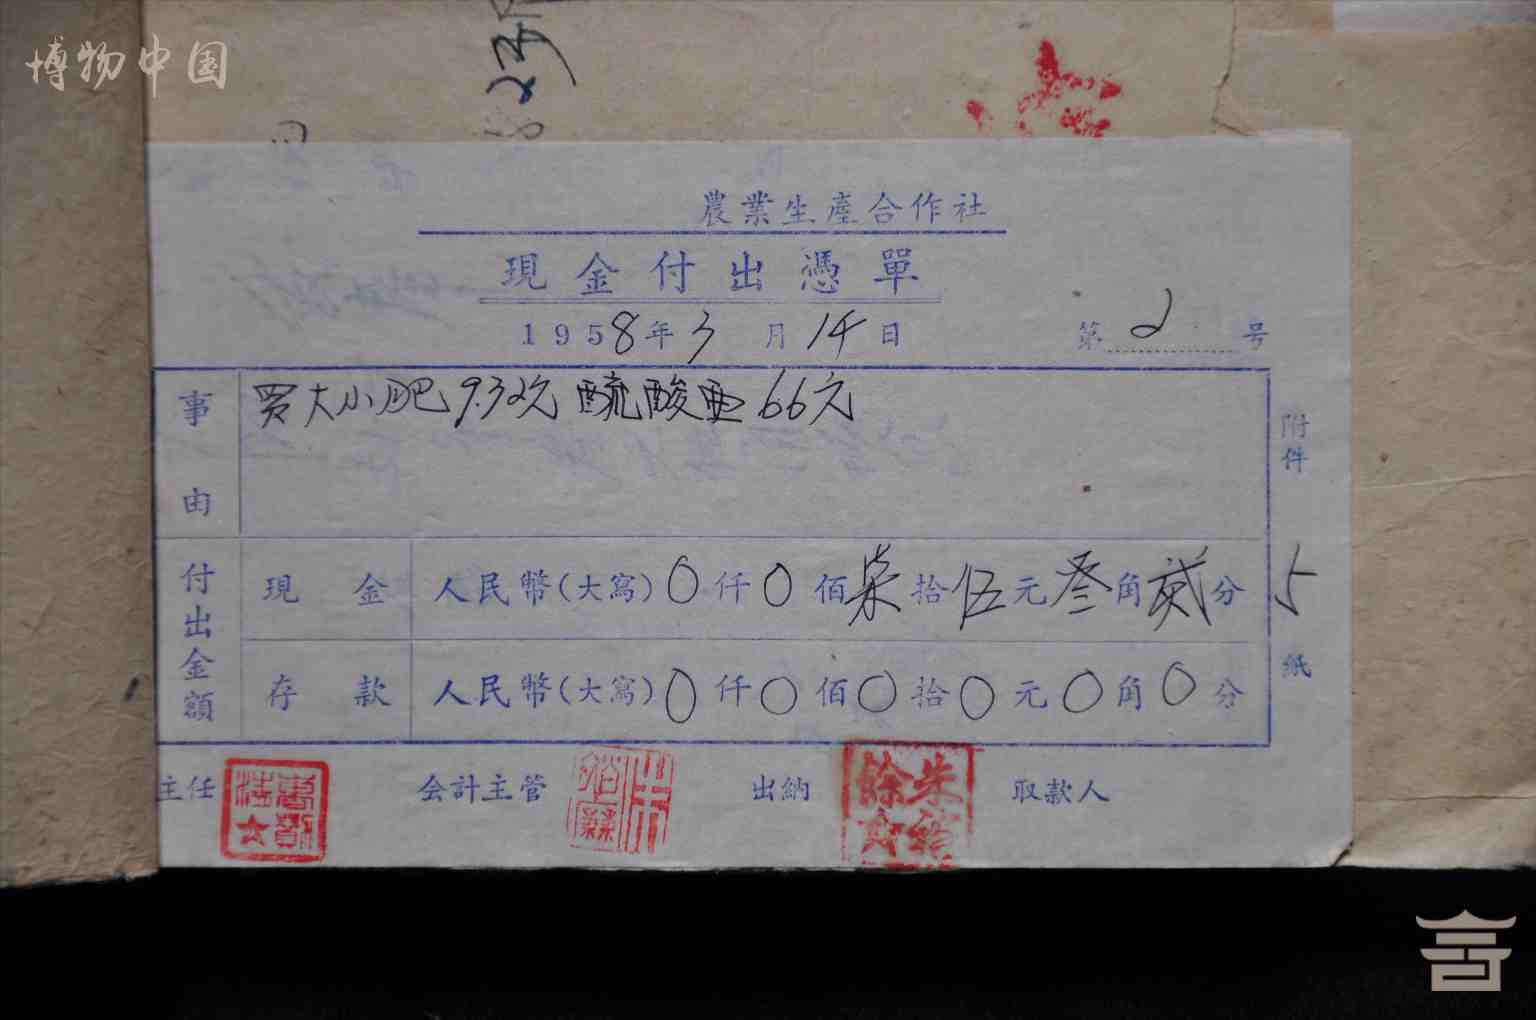 博物中国
農業生產合作社
現金付出憑單
1958年3月14日
第2号
事由
買大小肥9.32元 硫酸亜66元
附件5紙
付出金額
現金 人民幣(大寫)0仟0佰柒拾伍元叁角贰分
存款 人民幣(大寫)0仟0佰0拾0元0角0分
主任 会計主管 出納 取款人